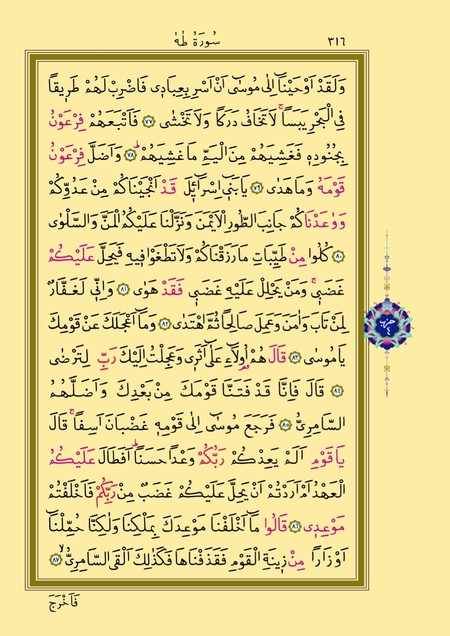 ٣١٦
سورة طه
وَلَقَدْ اَوْحَيْنَٓا اِلٰى مُوسٰٓى اَنْ اَسْرِ بِعِبَاد۪ى فَاضْرِبْ لَهُمْ طَر۪يقًا
فِى الْبَحْرِ يَبَسًاۙ لَا تَخَافُ دَرَكًا وَلَا تَخْشٰى ﴿٧٧﴾ فَاَتْبَعَهُمْ فِرْعَوْنُ
بِجُنُودِه۪ فَغَشِيَهُمْ مِنَ الْيَمِّ مَا غَشِيَهُمْۜ ﴿٧٨﴾ وَاَضَلَّ فِرْعَوْنُ
قَوْمَهُ وَمَا هَدٰى ﴿٧٩﴾ يَا بَن۪ٓى اِسْرَٓائ۪لَ قَدْ اَنْجَيْنَاكُمْ مِنْ عَدُوِّكُمْ
وَوٰعَدْنَاكُمْ جَانِبَ الطُّورِ الْاَيْمَنَ وَنَزَّلْنَا عَلَيْكُمُ الْمَنَّ وَالسَّلْوٰى
﴿٨٠﴾ كُلُوا مِنْ طَيِّبَاتِ مَا رَزَقْنَاكُمْ وَلَا تَطْغَوْا ف۪يهِ فَيَحِلَّ عَلَيْكُمْ
غَضَب۪ىۚ وَمَنْ يَحْلِلْ عَلَيْهِ غَضَب۪ى فَقَدْ هَوٰى ﴿٨١﴾ وَاِنّ۪ى لَغَفَّارٌ
لِمَنْ تَابَ وَاٰمَنَ وَعَمِلَ صَالِحًا ثُمَّ اهْتَدٰى ﴿٨٢﴾ وَمَٓا اَعْجَلَكَ عَنْ قَوْمِكَ
يَا مُوسٰى ﴿٨٣﴾ قَالَ هُمْ اُو۬لَٓاءِ عَلٰٓى اَثَر۪ى وَعَجِلْتُ اِلَيْكَ رَبِّ لِتَرْضٰى
﴿٨٤﴾ قَالَ فَاِنَّا قَدْ فَتَنَّا قَوْمَكَ مِنْ بَعْدِكَ وَاَضَلَّهُمُ
السَّامِرِىُّ ﴿٨٥﴾ فَرَجَعَ مُوسٰٓى اِلٰى قَوْمِه۪ غَضْبَانَ اَسِفًاۚ قَالَ
يَا قَوْمِ اَلَمْ يَعِدْكُمْ رَبُّكُمْ وَعْدًا حَسَنًاۜ اَفَطَالَ عَلَيْكُمُ
الْعَهْدُ اَمْ اَرَدْتُمْ اَنْ يَحِلَّ عَلَيْكُمْ غَضَبٌ مِنْ رَبِّكُمْ فَاَخْلَفْتُمْ
مَوْعِد۪ى ﴿٨٦﴾ قَالُوا مَٓا اَخْلَفْنَا مَوْعِدَكَ بِمَلْكِنَا وَلٰكِنَّا حُمِّلْنَٓا
اَوْزَارًا مِنْ ز۪ينَةِ الْقَوْمِ فَقَذَفْنَاهَا فَكَذٰلِكَ اَلْقَى السَّامِرِىُّۙ ﴿٨٧﴾
فَاَخْرَجَ